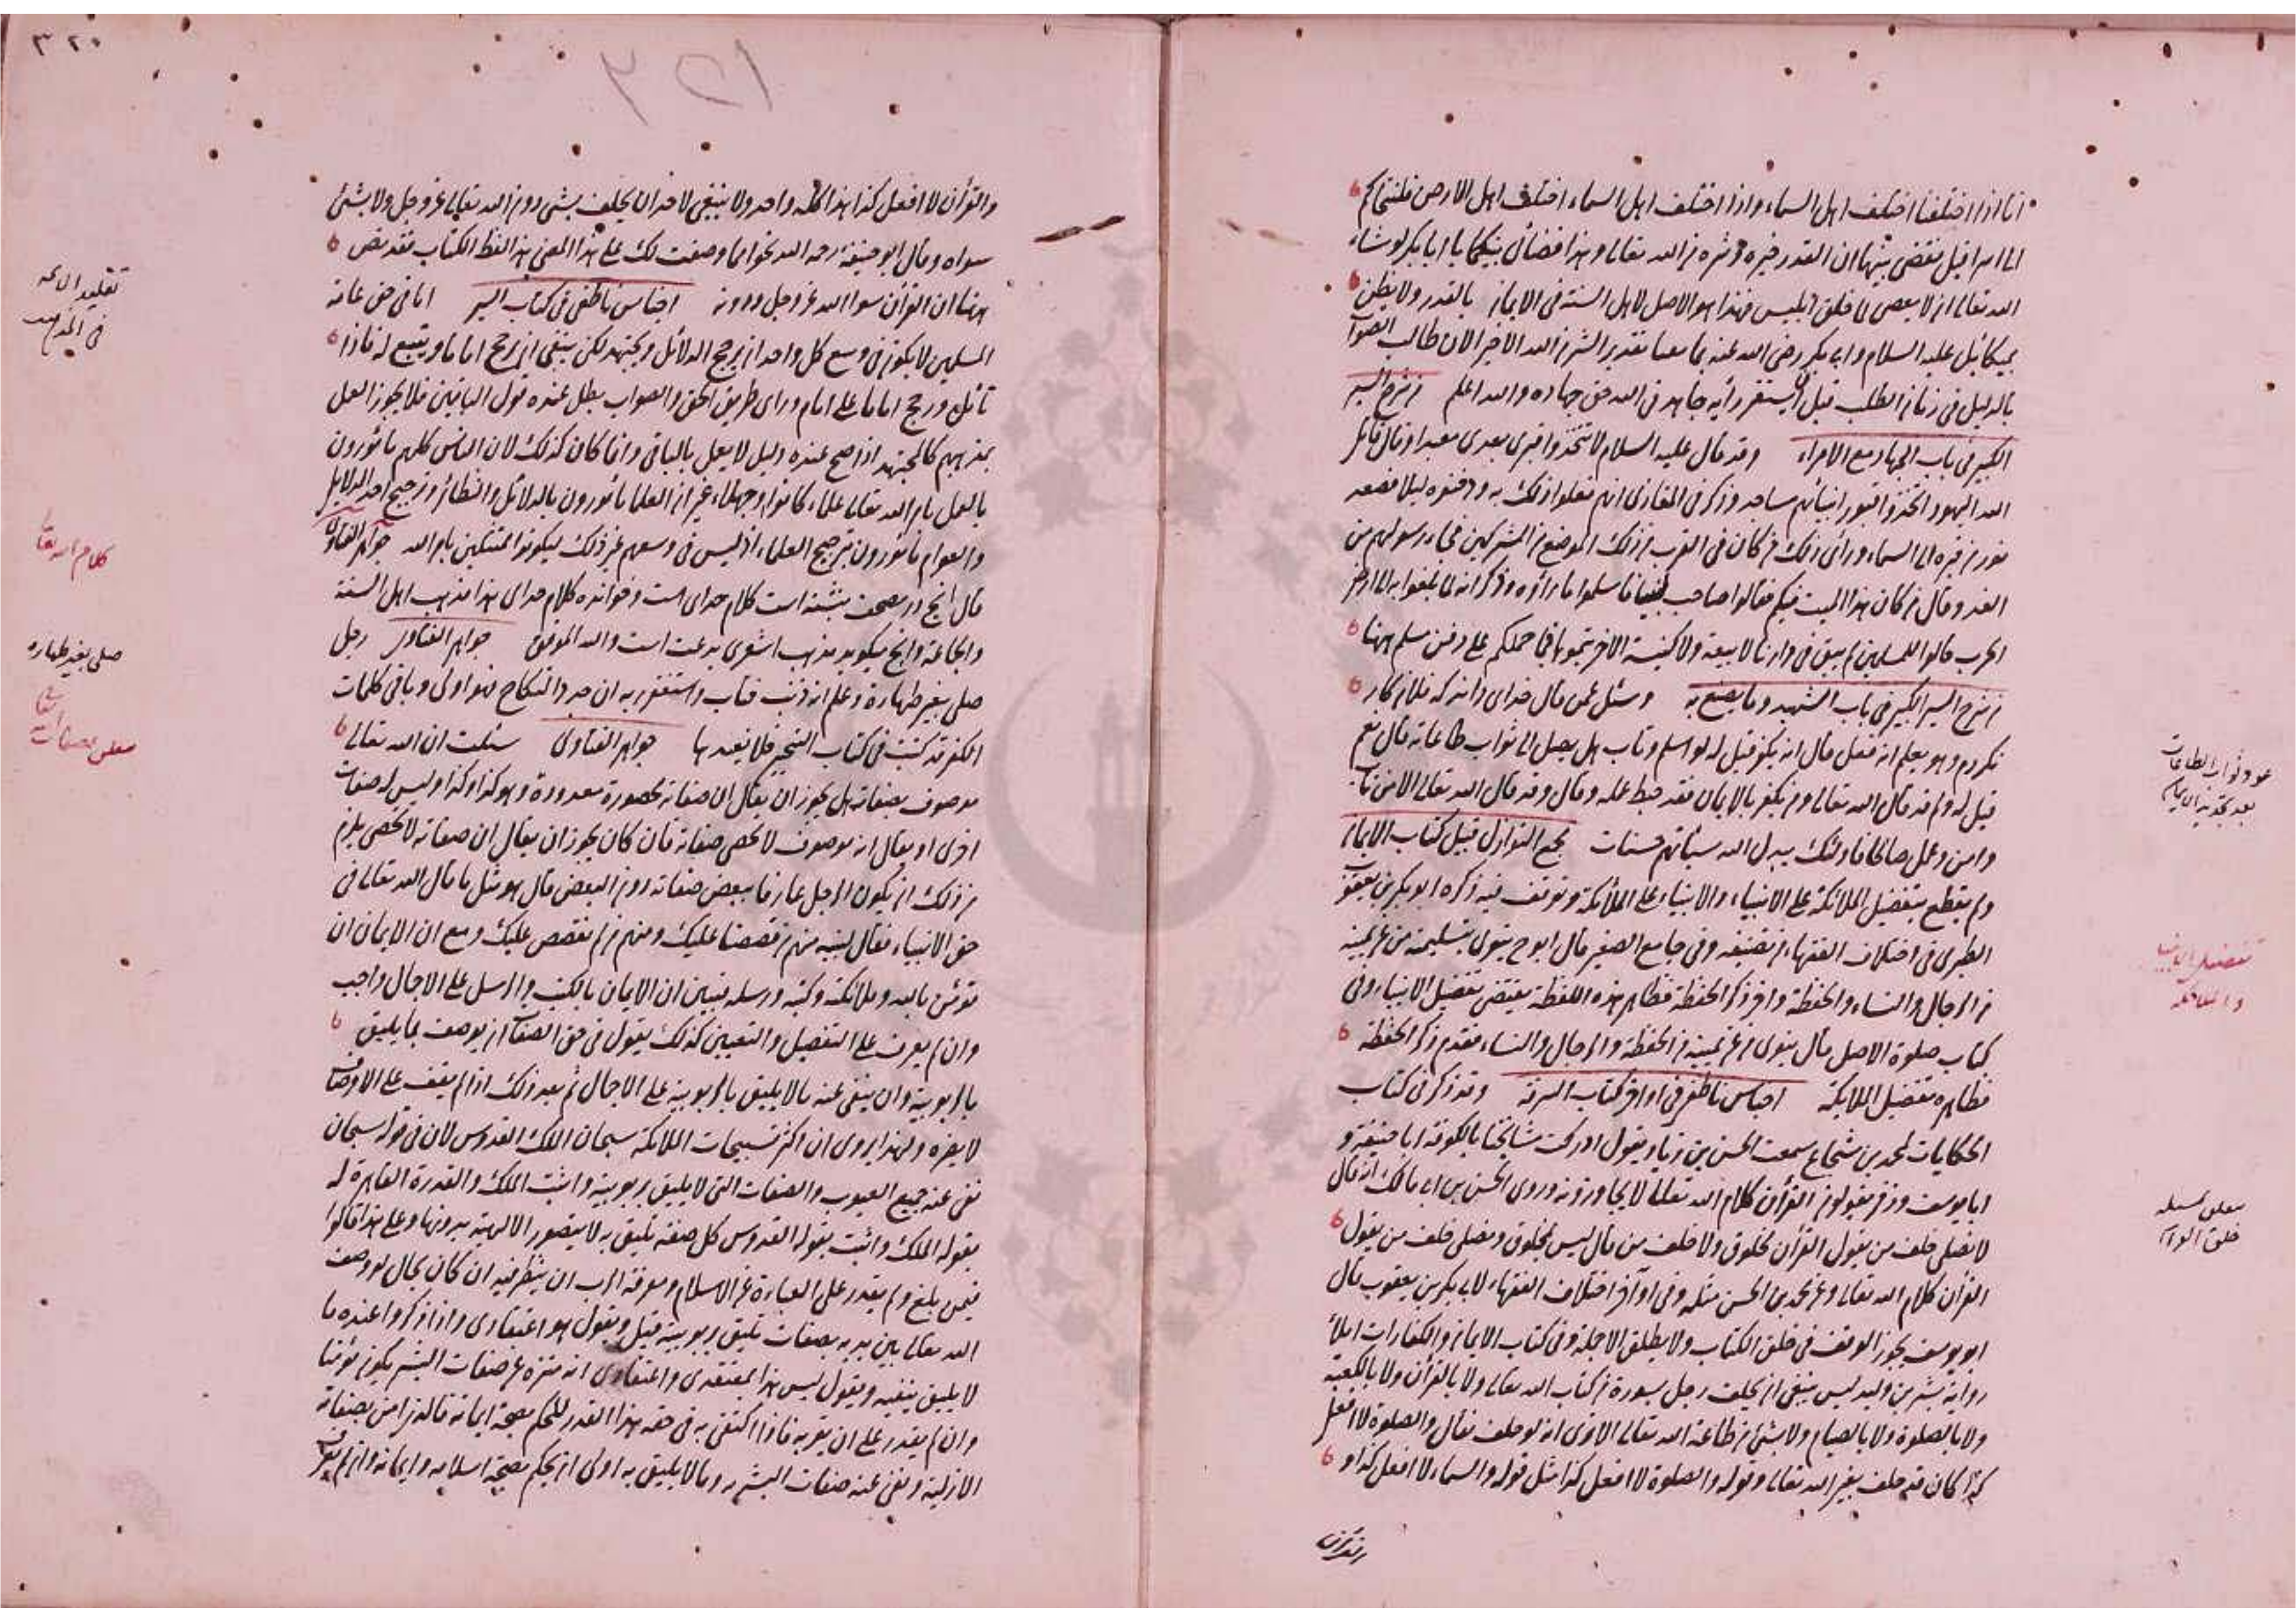 انا اذا اختلفنا اختلف اهل السماء واذا اختلف اهل السماء اختلف اهل الارض فلنتحاكم
الى اسرافيل فقضى بينهما ان القدر خيره وشره من الله تعالى وهذا قضائى بينكما يا ابا بكر لو شاء
الله تعالى ان لا يعصى لما خلق ابليس فهذا هو الاصل لاهل السنة فى الايمان بالقدر ولا يظن
بميكائيل عليه السلام وابى بكر رضى الله عنه تقدير الشر من الله الاخير الان طالب الصواب
بالدليل فى زمان الطلب قبل ان يستقر رأيه جاهد فى الله حق جهاده والله اعلم من شرح السير
الكبير فى باب الجهاد مع الامراء وقد قال عليه السلام لا تتخذوا قبرى بعدى مسجدا وقال قاتل
الله اليهود اتخذوا قبور انبيائهم مساجد وذكر فى المغازى انهم فعلوا ذلك به ودفنوه ليلا فصعد
نور من قبره الى السماء وراى ذلك من كان فى القرب من ذلك الموضع من المشركين فجاء رسولهم من
الغد وقال من كان هذا الميت فيكم فقالوا صاحب نبينا فاسلموا بما رأوه وذكر انه لما بلغوا به الى ارض
الحرب قالوا للمسلمين لم يبق فى دارنا لا بيعة ولا كنيسة الا خربتموها فما حملكم على دفن مسلم ههنا
من شرح السير الكبير فى باب الشهيد وما يصنع به وسئل عمن قال خداى داند كه فلان كار
نكردم وهو يعلم انه فعل قال انه يكفر قيل له لو اسلم وتاب هل يصل الى ثواب طاعاته قال نعم
قيل له ولم قد قال الله تعالى ومن يكفر بالايمان فقد حبط عمله وقال وقد قال الله تعالى الا من تاب
وامن وعمل صالحا فاولئك يبدل الله سيأتهم حسنات مجمع النوازل قبيل كتاب الايمان
ولم يقطع بتفضيل الملائكة على الانبياء والانبياء على الملائكة وتوقف فيه ذكره ابو بكر بن يعقوب
الطبرى فى اختلاف الفقهاء من تصنيفه وفى جامع الصغير قال ابو ح ينوى بتسليمة من عن يمينه
من الرجال والنساء والحفظة واخر ذكر الحفظة فظاهر هذه اللفظة يقتضى تفضيل الانبياء وفى
كتاب صلوة الاصل قال ينوى من عن يمينه من الحفظة والرجال والنساء فقدم ذكر الحفظة
فظاهره تفضيل الملائكة اجناس ناطفى فى اواخر كتاب السرقة وقد ذكر فى كتاب
الحكايات لمحمد بن شجاع سمعت الحسن بن زياد يقول ادركت مشايخنا بالكوفة ابا حنيفة و
ابا يوسف وزفر يقولون القرآن كلام الله تعالى لا يجاوزونه وروى الحسن بن ابى مالك انه قال
لا تصلى خلف من يقول القرآن مخلوق ولا خلف من قال ليس بمخلوق وتصلى خلف من يقول
القرآن كلام الله تعالى وعن محمد بن الحسن مثله وفى اواخر اختلاف الفقهاء لابى بكر بن يعقوب قال
ابو يوسف يجوز الوقف فى خلق الكتاب ولا يطلق الاجلة وفى كتاب الايمان والكفارات املأ
رواية بشر بن وليد ليس ينبغى ان يحلف رجل بسورة من كتاب الله تعالى ولا بالقرآن ولا بالكعبة
ولا بالصلوة ولا بالصيام ولا بشئ من طاعة الله تعالى الا ترى انه لو حلف فقال والصلوة لا افعل
كذا كان قد حلف بغير الله تعالى وقوله والصلوة لا افعل كذا مثل قوله والسماء لا افعل كذا و
عود ثواب الطاعات
بعد تجديد الايمان
تفضيل الانبياء
والملائكة
مسئلة
خلق القرآن
٣٢٠
والقرآن لا افعل كذا هذا كله واحد ولا ينبغى لاحد ان يحلف بشئ دون الله تعالى عز وجل ولا بشئ
سواه وقال ابو حنيفة رحمه الله نحوا مما وصفت لك على هذا المعنى هذا لفظ الكتاب فقد نص
ههنا ان القرآن سوا الله عز وجل ودونه اجناس ناطفى فى كتاب السير اما فى حق عامة
المسلمين لا يكون فى وسع كل واحد ان يرجح الدلائل ويجتهد لكن ينبغى ان يرجح اماما ويتبع له فاذا
تأمل ورجح اماما على امام وراى طريق الحق والصواب بطل عنده قول الباقين فلا يجوز العمل
بمذهبهم كالمجتهد اذا صح عنده دليل لا يعمل بالباقى وانما كان كذلك لان الناس كلهم مأمورون
بالعمل بامر الله تعالى علماء كانوا او جهلاء غير ان العلماء مأمورون بالدلائل والنظائر وترجيح احد الدلايل
والعوام مأمورون بترجيح العلماء اذ ليس فى وسعهم غير ذلك ليكونوا متمسكين بامر الله جواهر الفتاوى
قال انچ در مصحف نبشته است كلام خداى است وخوانده كلام خداى هذا مذهب اهل السنة
والجماعة وانچ ميكويد مذهب اشعرى بدعت است والله الموفق جواهر الفتاوى رجل
صلى بغير طهارة وعلم انه ذنب فتاب واستغفر ربه ان جدد النكاح فهو اولى وباقى كلمات
الكفر قد كتبت فى كتاب فلا نعيدها جواهر الفتاوى سئلت ان الله تعالى
موصوف بصفاته هل يجوز ان يقال ان صفاته محصورة معدودة وهو كذا وكذا وليس له صفات
اخرى او يقال انه موصوف لا تحصى صفاته فان كان يجوز ان يقال ان صفاته لا تحصى يلزم
من ذلك ان يكون الرجل عارفا ببعض صفاته دون البعض قال هو مثل ما قال الله تعالى فى
حق الانبياء فقال لنبيه منهم من قصصنا عليك ومنهم من لم نقصص عليك ومع ان الايمان ان
تؤمن بالله وملائكته وكتبه ورسله فتبين ان الايمان بالكتب والرسل على الاجمال واجب
وان لم يعرف على التفصيل والتعيين كذلك يقول فى حق الصفات ان يوصف بما يليق
بالربوبية وان ينفى عنه ما لا يليق بالربوبية على الاجمال ثم بعد ذلك اذا لم يقف على الاوصاف
لا يضره ولهذا يروى ان اكثر تسبيحات الملائكة سبحان الملك القدوس لان فى قوله سبحان
نفى عنه جميع العيوب والصفات التى لا يليق بربوبيته واثبت الملك والقدرة القاهرة له
بقوله الملك واثبت بقوله القدوس كل صفة تليق به لا يتصور الالهية بدونها وعلى هذا قالوا
فيمن بلغ ولم يقدر على العبارة عن الاسلام ومعرفة الرب ان ينظر فيه ان كان بحال لو وصف
الله تعالى بين يديه بصفات تليق بربوبيته قبل ويقول هو اعتقادى واذا ذكروا عنده ما
لا يليق ينفيه ويقول ليس هذا بمعتقدى واعتقادى انه منزه عن صفات البشر يكون مؤمنا
وان لم يقدر على ان يقر به فاذا اكتفى به فى حقه هذا القدر للحكم بصحة ايمانه فالذى امن بصفاته
الازلية ونفى عنه صفات البشر وما لا يليق به اولى ان يحكم بصحة اسلامه وايمانه وان لم يعرف
تقليد الائمة
فى المذهب
كلام الله تعالى
صلى بغير طهارة